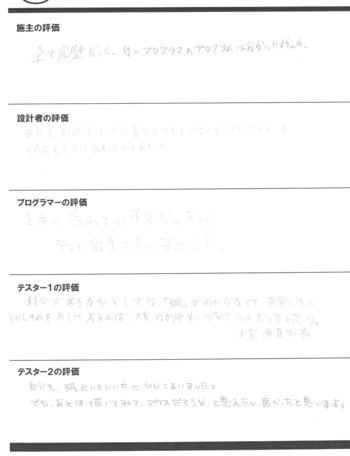 施主の評価
全て完璧だった。特にプログラマのプログラムは分かりやすかった。
設計者の評価
プログラマーの評価
上手く伝わるか不安だったが
テスト結果を見て安心した。
テスター1の評価
数学が苦手な私としては、「弧」がわからなくて、苦労した。
しかしそれを外して考えれば、大変わかりやすいプログラムだったと思う。
大変満足です。
テスター2の評価
自分も、弧といういい方に少しこまりました。
でも、あとは描いてみて、マウスだろうな、と思えたし、良かったと思います。